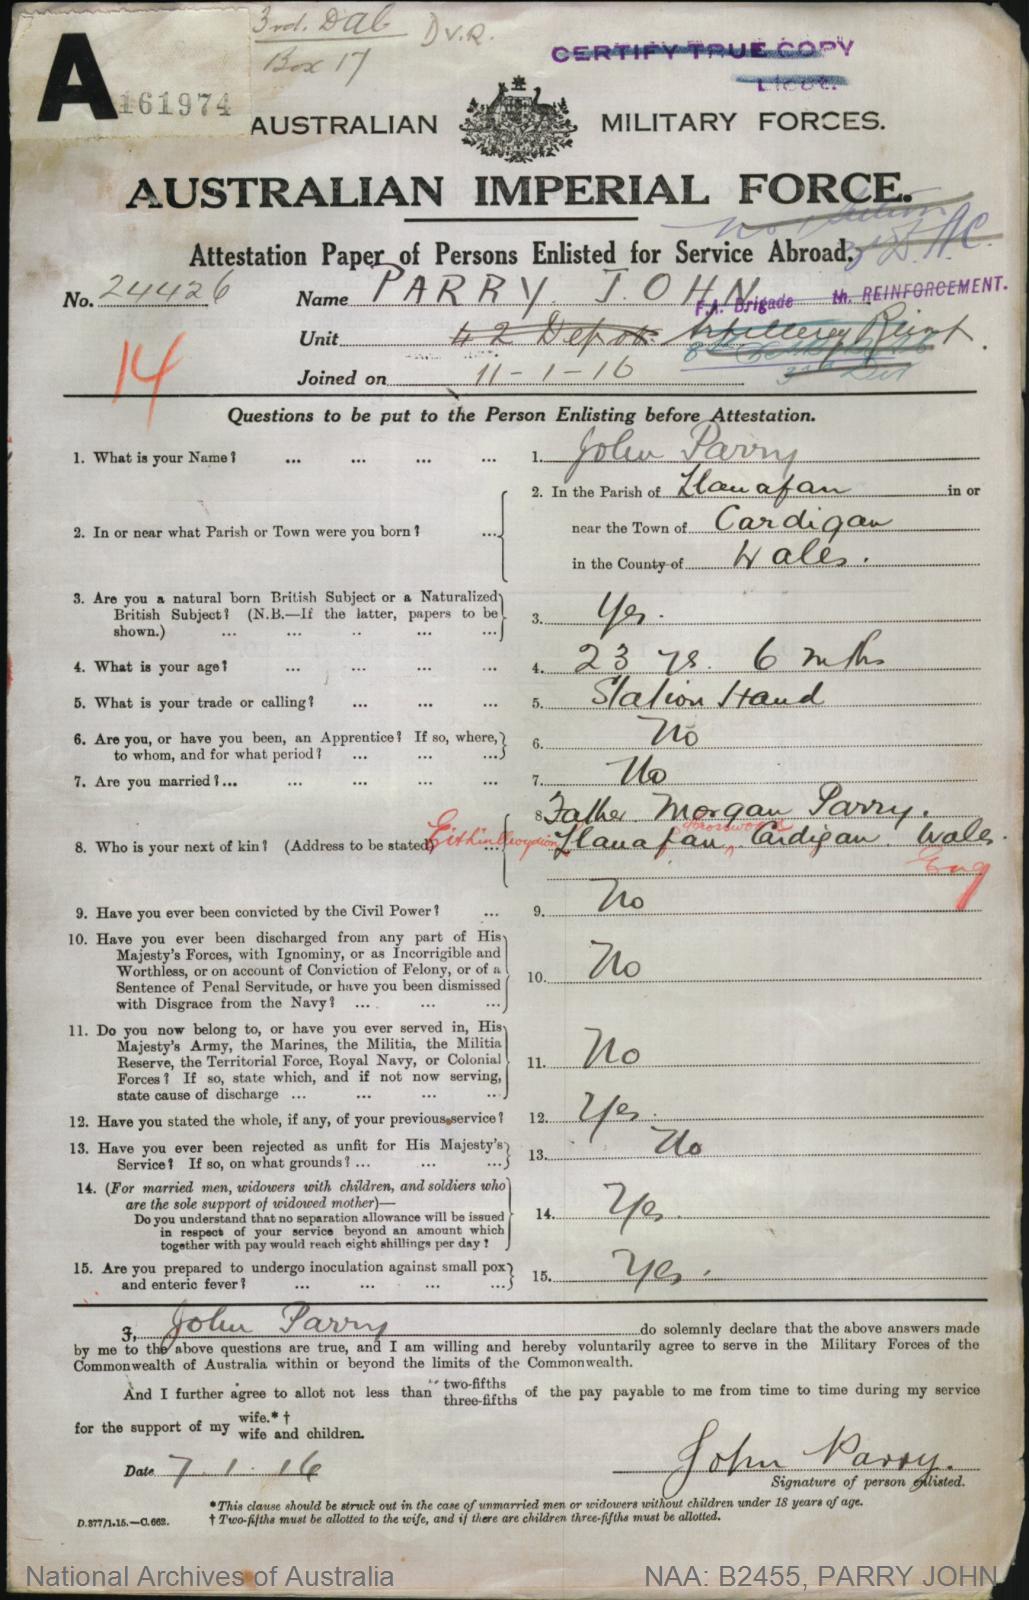 3rd. DAB
Box 17
D.V.R.
CERTIFY TRUE COPY
Lieut.
A
161974
AUSTRALIAN MILITARY FORCES.
AUSTRALIAN IMPERIAL FORCE.
Attestation Paper of Persons Enlisted for Service Abroad.
No. 24426 Name PARRY. JOHN
F.A. Brigade th. REINFORCEMENT.
Unit 42 Depot Artillery Reinf.
14
Joined on 11-1-16
Questions to be put to the Person Enlisting before Attestation.
1. What is your Name? ... ... ... ... 1. John Parry
2. In or near what Parish or Town were you born? ... 2. In the Parish of Llanafan in or
near the Town of Cardigan
in the County of Wales.
3. Are you a natural born British Subject or a Naturalized
British Subject? (N.B.—If the latter, papers to be
shown.) ... ... .. ... ... 3. Yes.
4. What is your age? ... ... ... ... 4. 23 yrs. 6 mths
5. What is your trade or calling? ... ... ... 5. Station Hand
6. Are you, or have you been, an Apprentice? If so, where,
to whom, and for what period? ... ... ... 6. No
7. Are you married?... ... ... ... ... 7. No
8. Father Morgan Parry.
8. Who is your next of kin? (Address to be stated) ... Llanafan, Cardigan. Wales.
Eng
9. Have you ever been convicted by the Civil Power? ... 9. No
10. Have you ever been discharged from any part of His
Majesty's Forces, with Ignominy, or as Incorrigible and
Worthless, or on account of Conviction of Felony, or of a
Sentence of Penal Servitude, or have you been dismissed
with Disgrace from the Navy? ... ... ... 10. No
11. Do you now belong to, or have you ever served in, His
Majesty's Army, the Marines, the Militia, the Militia
Reserve, the Territorial Force, Royal Navy, or Colonial
Forces? If so, state which, and if not now serving,
state cause of discharge ... ... ... ... 11. No
12. Have you stated the whole, if any, of your previous service? 12. Yes.
13. Have you ever been rejected as unfit for His Majesty's
Service? If so, on what grounds? ... ... ... 13. No
14. (For married men, widowers with children, and soldiers who
are the sole support of widowed mother)—
Do you understand that no separation allowance will be issued
in respect of your service beyond an amount which
together with pay would reach eight shillings per day? 14. Yes.
15. Are you prepared to undergo inoculation against small pox
and enteric fever? ... ... ... ... 15. Yes.
I, John Parry do solemnly declare that the above answers made
by me to the above questions are true, and I am willing and hereby voluntarily agree to serve in the Military Forces of the
Commonwealth of Australia within or beyond the limits of the Commonwealth.
And I further agree to allot not less than two-fifths three-fifths of the pay payable to me from time to time during my service
for the support of my wife.*† wife and children.
Date 7.1.16 John Parry.
Signature of person enlisted.
*This clause should be struck out in the case of unmarried men or widowers without children under 18 years of age.
D.377/1.15.—C.662. † Two-fifths must be allotted to the wife, and if there are children three-fifths must be allotted.
National Archives of Australia NAA: B2455, PARRY JOHN